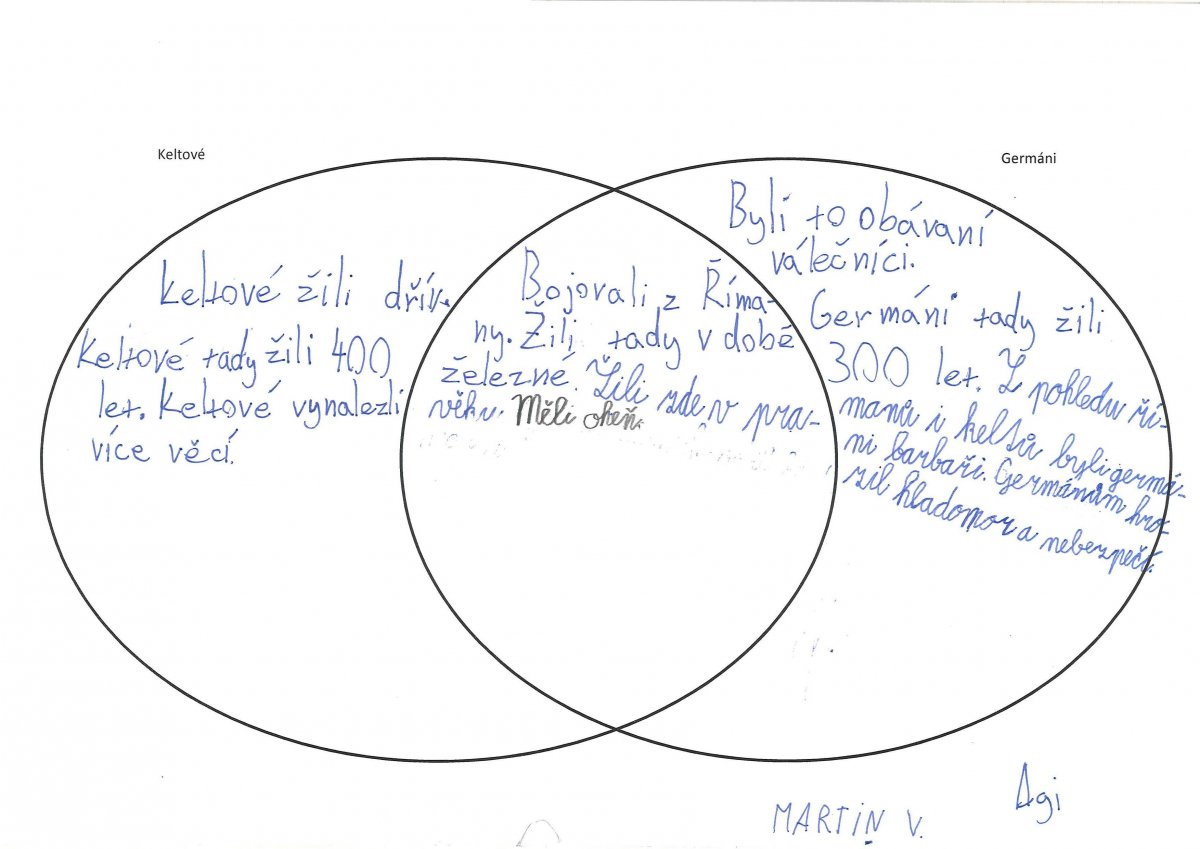 Keltové
Germáni
Keltové žili dřív.
Keltové tady žili 400
let. Keltové vynalezli
více věcí.
Bojovali z Říma-
ny. Žili tady v době
železné. Žili zde v pra-
věku. Měli oheň.
Byli to obávaní
válečníci.
Germáni tady žili
300 let. Z pohledu ří-
manů i keltů byli germá-
ni barbaři. Germánům hro-
zil hladomor a nebezpečí.
Agi
MARTIN V.